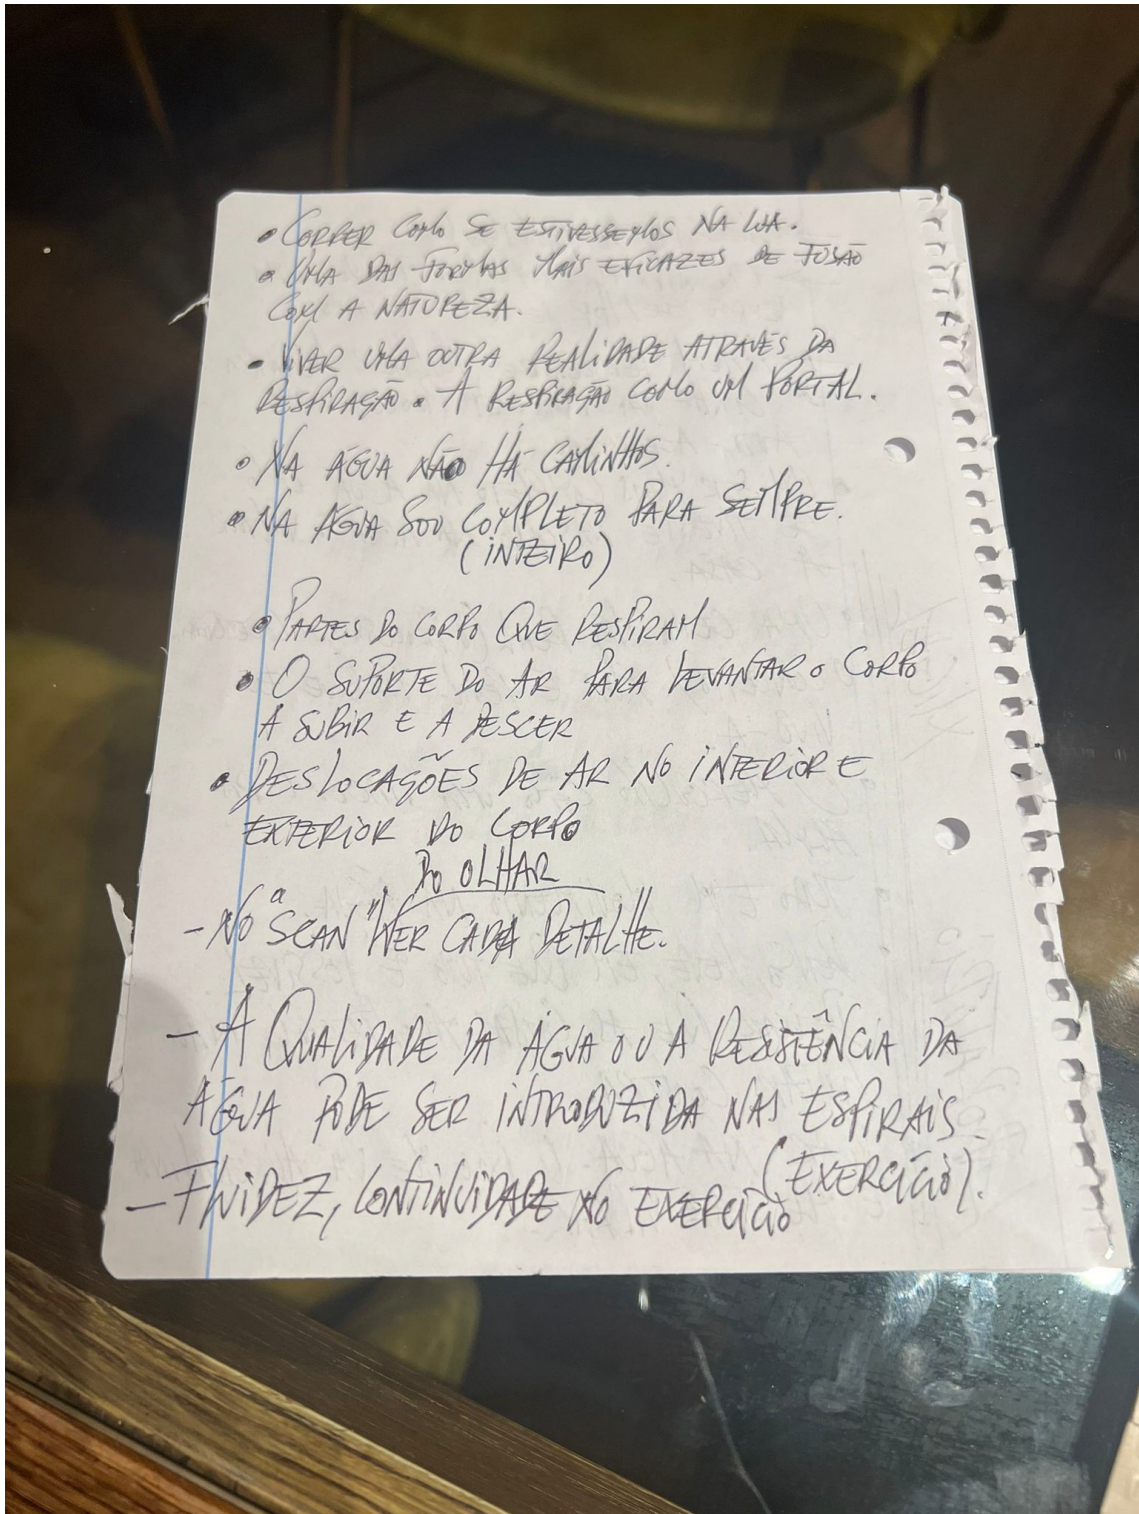 • CORRER COMO SE ESTIVESSEMOS NA LUA.
• UMA DAS FORMAS MAIS EFICAZES DE FUSÃO
COM A NATUREZA.
• VIVER UMA OUTRA REALIDADE ATRAVÉS DA
RESPIRAÇÃO. A RESPIRAÇÃO COMO UM PORTAL.
• NA ÁGUA NÃO HÁ CAMINHOS.
• NA ÁGUA SOU COMPLETO PARA SEMPRE.
(INTEIRO)
• PARTES DO CORPO QUE RESPIRAM
• O SUPORTE DO AR PARA LEVANTAR O CORPO
A SUBIR E A DESCER
• DESLOCAÇÕES DE AR NO INTERIOR E
EXTERIOR DO CORPO
DO OLHAR
- NO "SCAN" VER CADA DETALHE.
- A QUALIDADE DA ÁGUA OU A RESISTÊNCIA DA
ÁGUA PODE SER INTRODUZIDA NAS ESPIRAIS.
(EXERCÍCIO).
- FLUIDEZ, CONTINUIDADE NO EXERCÍCIO